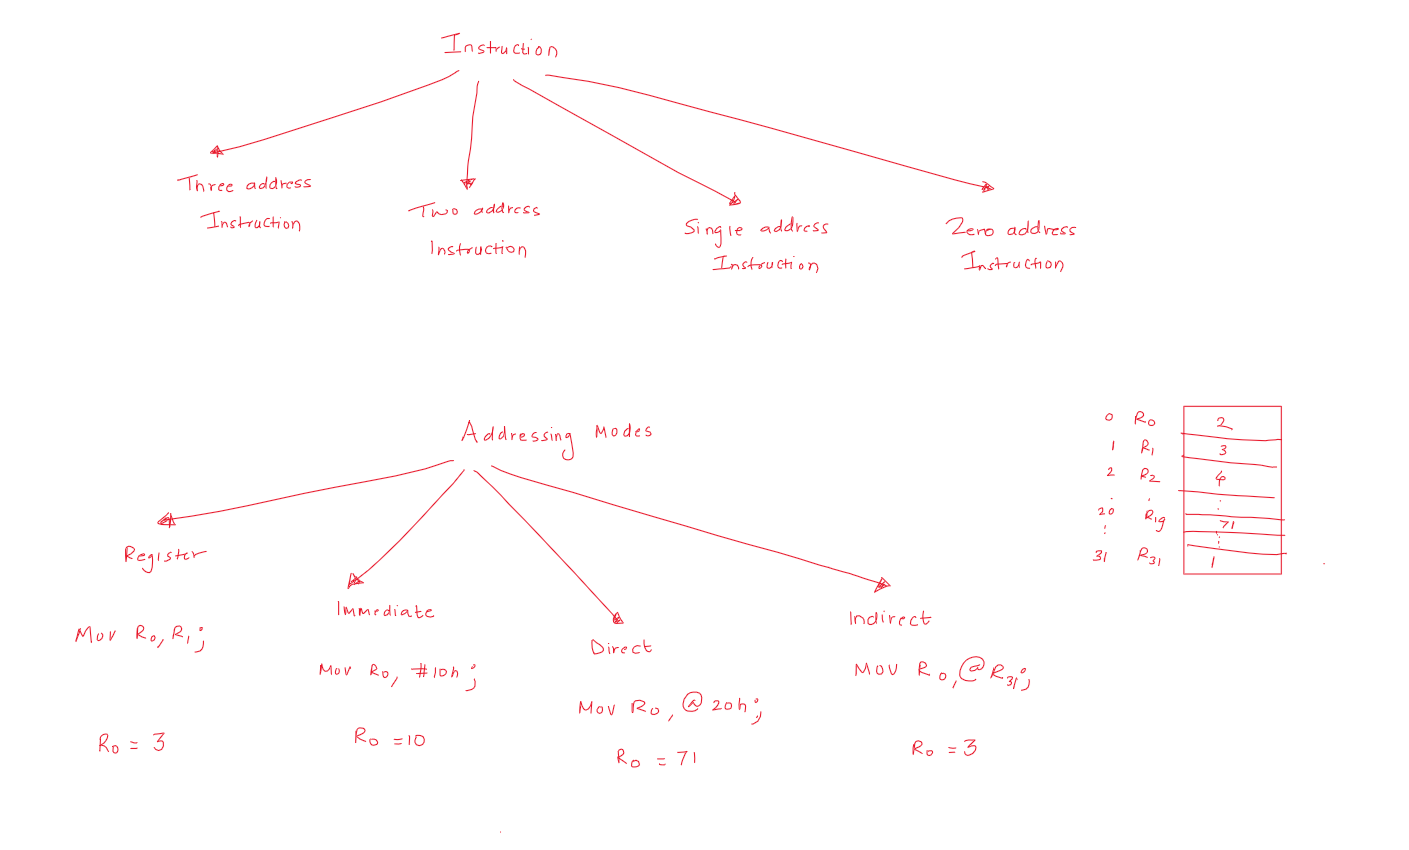 Instruction
Three address
Instruction
Two address
Instruction
Single address
Instruction
Zero address
Instruction
Addressing Modes
Register
Mov R0, R1;
R0 = 3
Immediate
Mov R0, #10h;
R0 = 10
Direct
Mov R0, @20h;
R0 = 71
Indirect
Mov R0, @R31;
R0 = 3
0 R0 2
1 R1 3
2 R2 4
. . :
20 R19 71
: :
31 R31 1